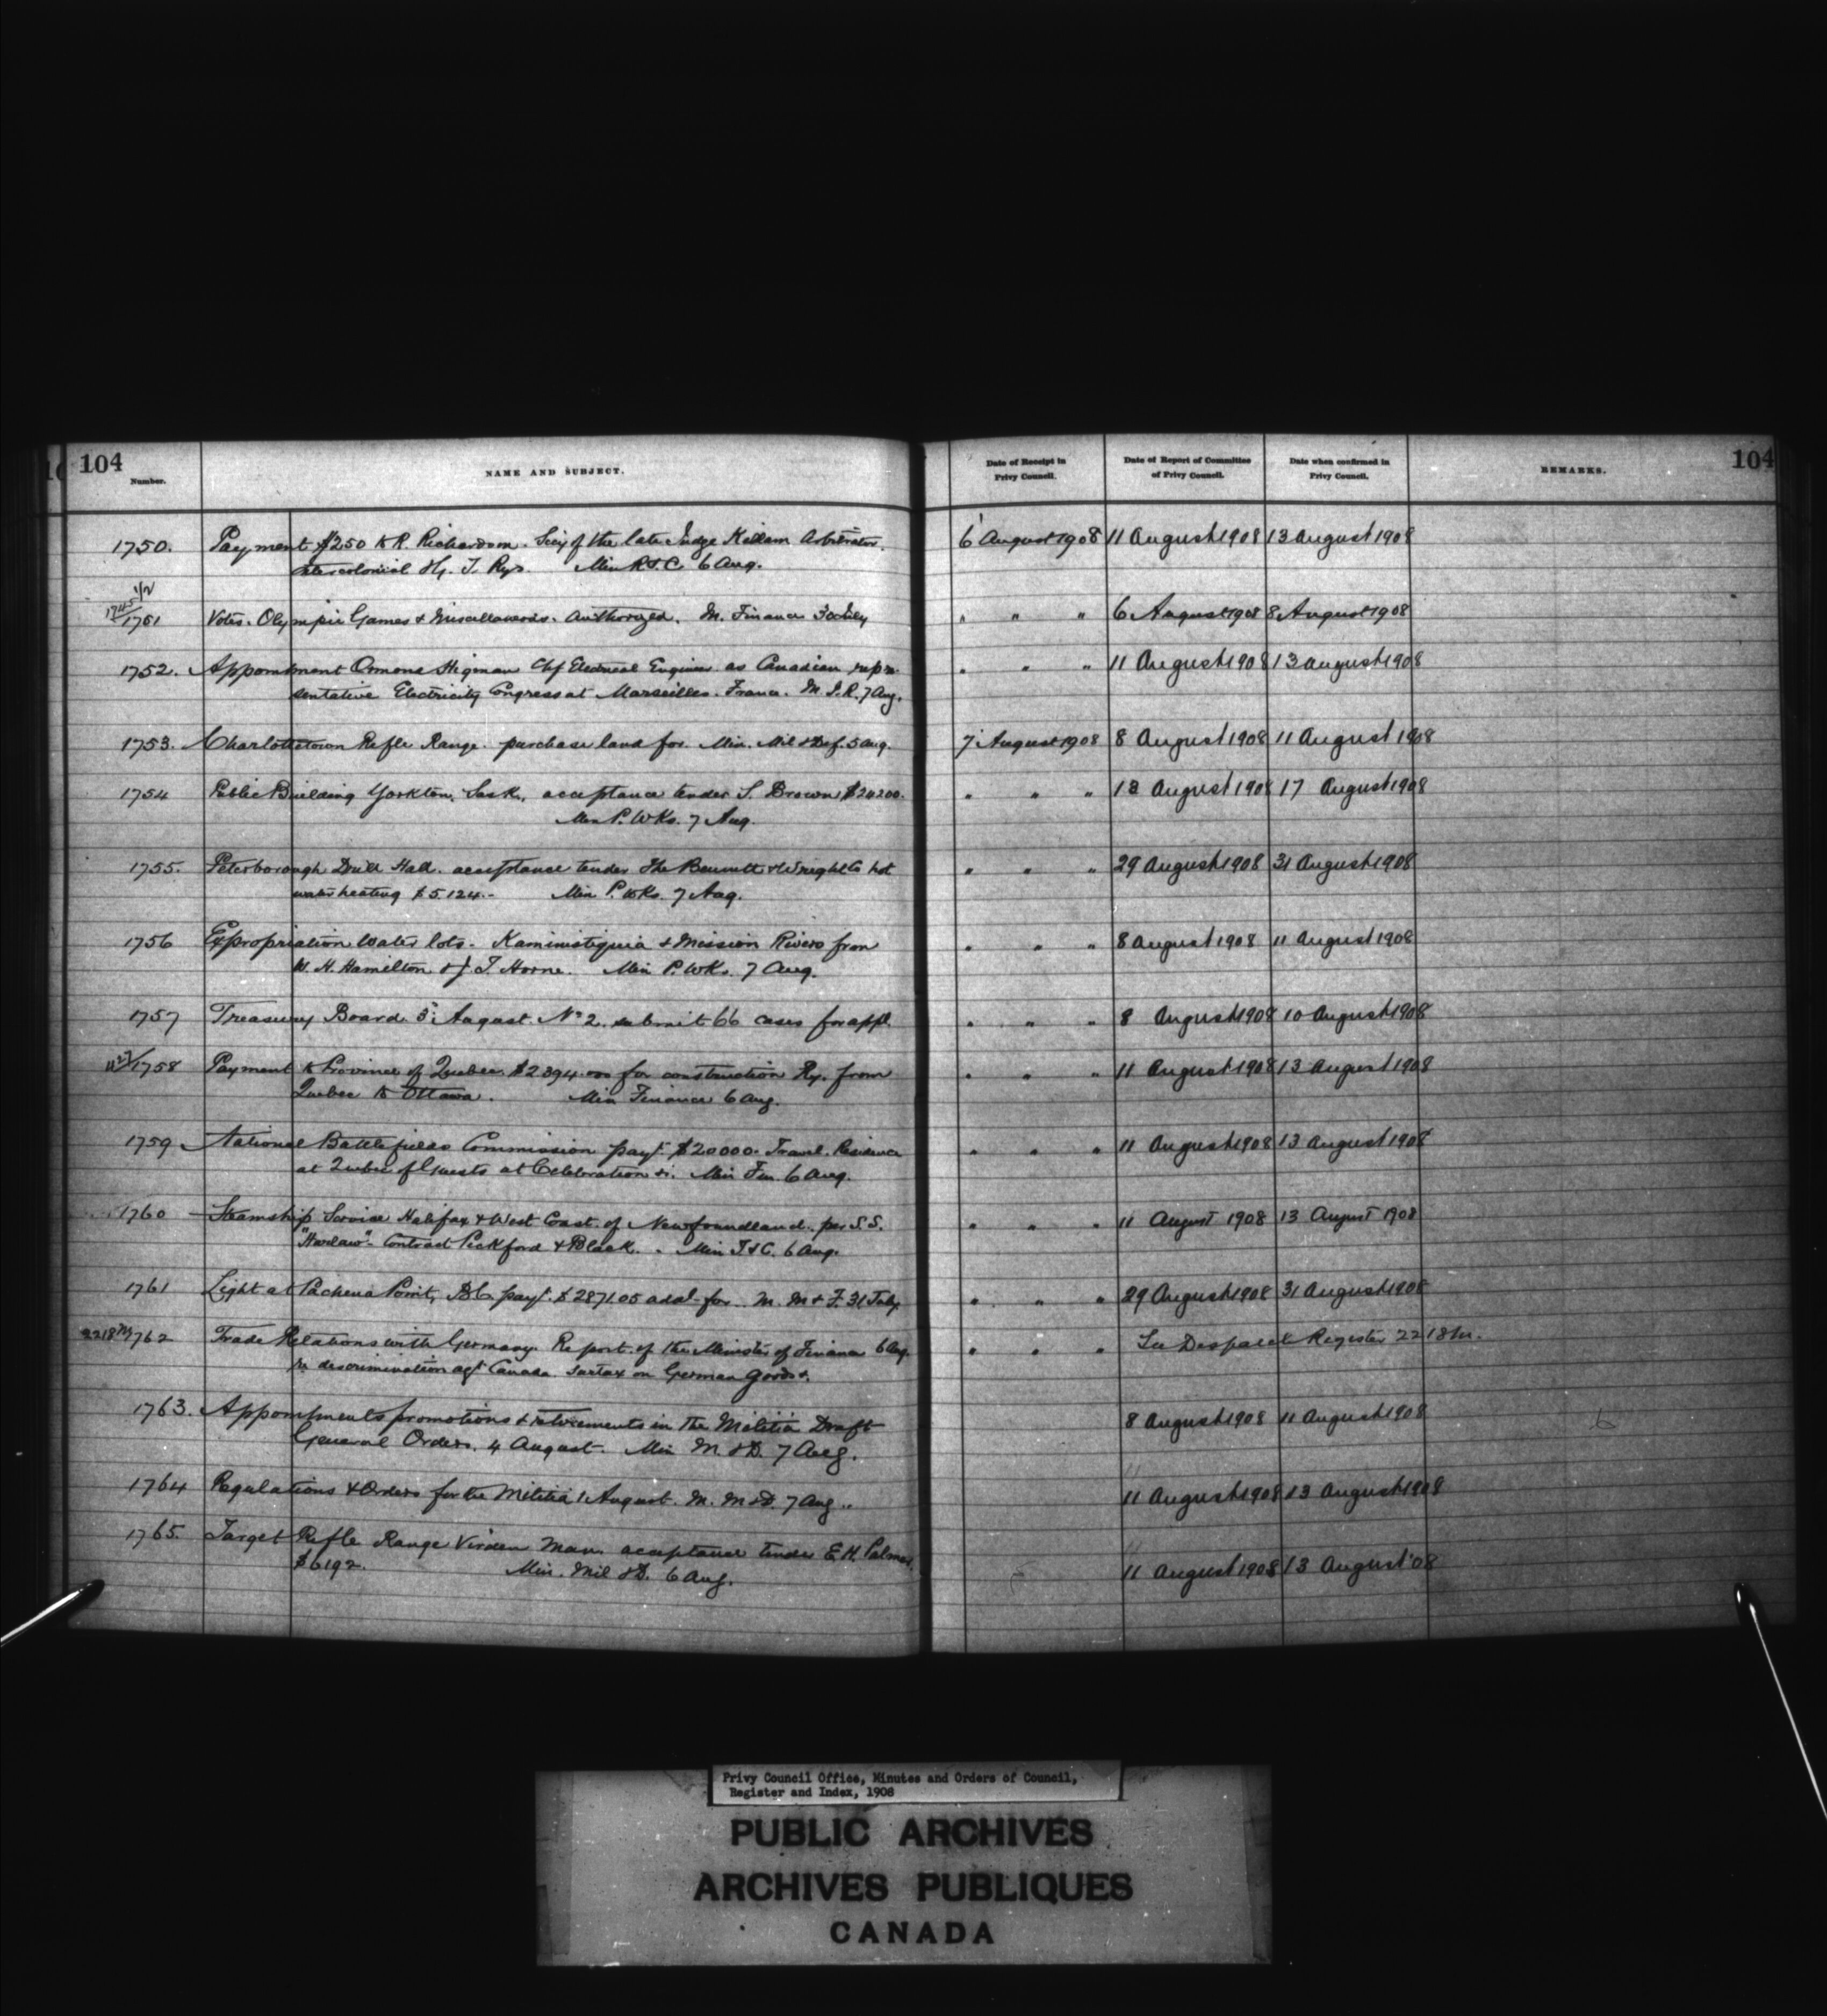 104
Number.
NAME AND SUBJECT.
Date of Receipt in
Privy Council.
Date of Report of Committee
of Privy Council.
Date when confirmed in
Privy Council.
REMARKS.
104
1750. Payment $250 to R. Richardson. Secy of the late Judge Killam Arbitrator. 6 August 1908 11 August 1908 13 August 1908
Intercolonial & G. T. Rys. Min R & C. 6 Aug.
1745 1/2
1751 Votes. Olympic Games & Miscellaneous. Authorized. M. Finance 30 July " " " 6 August 1908 8 August 1908
1752. Appointment Ormond Higman Chf Electrical Engineer as Canadian repre- " " " 11 August 1908 13 August 1908
sentative Electricity Congress at Marseilles. France. M. I. R. 7 Aug.
1753. Charlottetown Rifle Range. purchase land for. Min. Mil & Def. 5 Aug. 7 August 1908 8 August 1908 11 August 1908
1754 Public Building Yorkton, Sask, acceptance tender S. Brown $24200. " " " August 1908 17 August 1908
Min P. Wks. 7 Aug.
1755. Peterborough Drill Hall. acceptance tender The Bennett & Wright Co hot " " " 29 August 1908 31 August 1908
water heating $5124.- Min P. Wks. 7 Aug.
1756 Expropriation water lots. Kaministiquia & Mission Rivers from " " " 8 August 1908 11 August 1908
W. H. Hamilton & J. T. Horne. Min P. Wks. 7 Aug.
1757 Treasury Board 5 August. No 2. submit 66 cases for appl. " " " 8 August 1908 10 August 1908
1758 Payment to Province of Quebec $2394.000 for construction Ry. from " " " 11 August 1908 13 August 1908
Quebec to Ottawa. Min Finance 6 Aug.
1759 National Battlefields Commission payt $20000. Travel. Residence " " " 11 August 1908 13 August 1908
at Quebec of Guests at Celebration &c. Min Fin. 6 Aug.
1760 Steamship Service Halifax & West Coast of Newfoundland. per S.S. " " " 11 August 1908 13 August 1908
"Harlaw" - Contract Pickford & Black. - Min T & C. 6 Aug.
1761 Light at Pachena Point, B.C. payt. $2871.05 addl for M. M & F. 31 July " " " 29 August 1908 31 August 1908
2218 M/1762 Trade Relations with Germany. Report of the Minister of Finance 6 Aug. " " " See Despatch Register 2218 M.
re discrimination agt Canada. Surtax on German goods &.
1763. Appointments promotions & retirements in the Militia Draft 8 August 1908 11 August 1908
General Orders. 4 August. Min M. & D. 7 Aug.
1764 Regulations & Orders for the Militia 1 August. M. M & D. 7 Aug. 11 August 1908 13 August 1908
1765. Target Rifle Range Virden Man. acceptance tender E. H. Palmer.
$6192. Min. Mil & D. 6 Aug. 11 August 1908 13 August '08
Privy Council Office, Minutes and Orders of Council,
Register and Index, 1908
PUBLIC ARCHIVES
ARCHIVES PUBLIQUES
CANADA